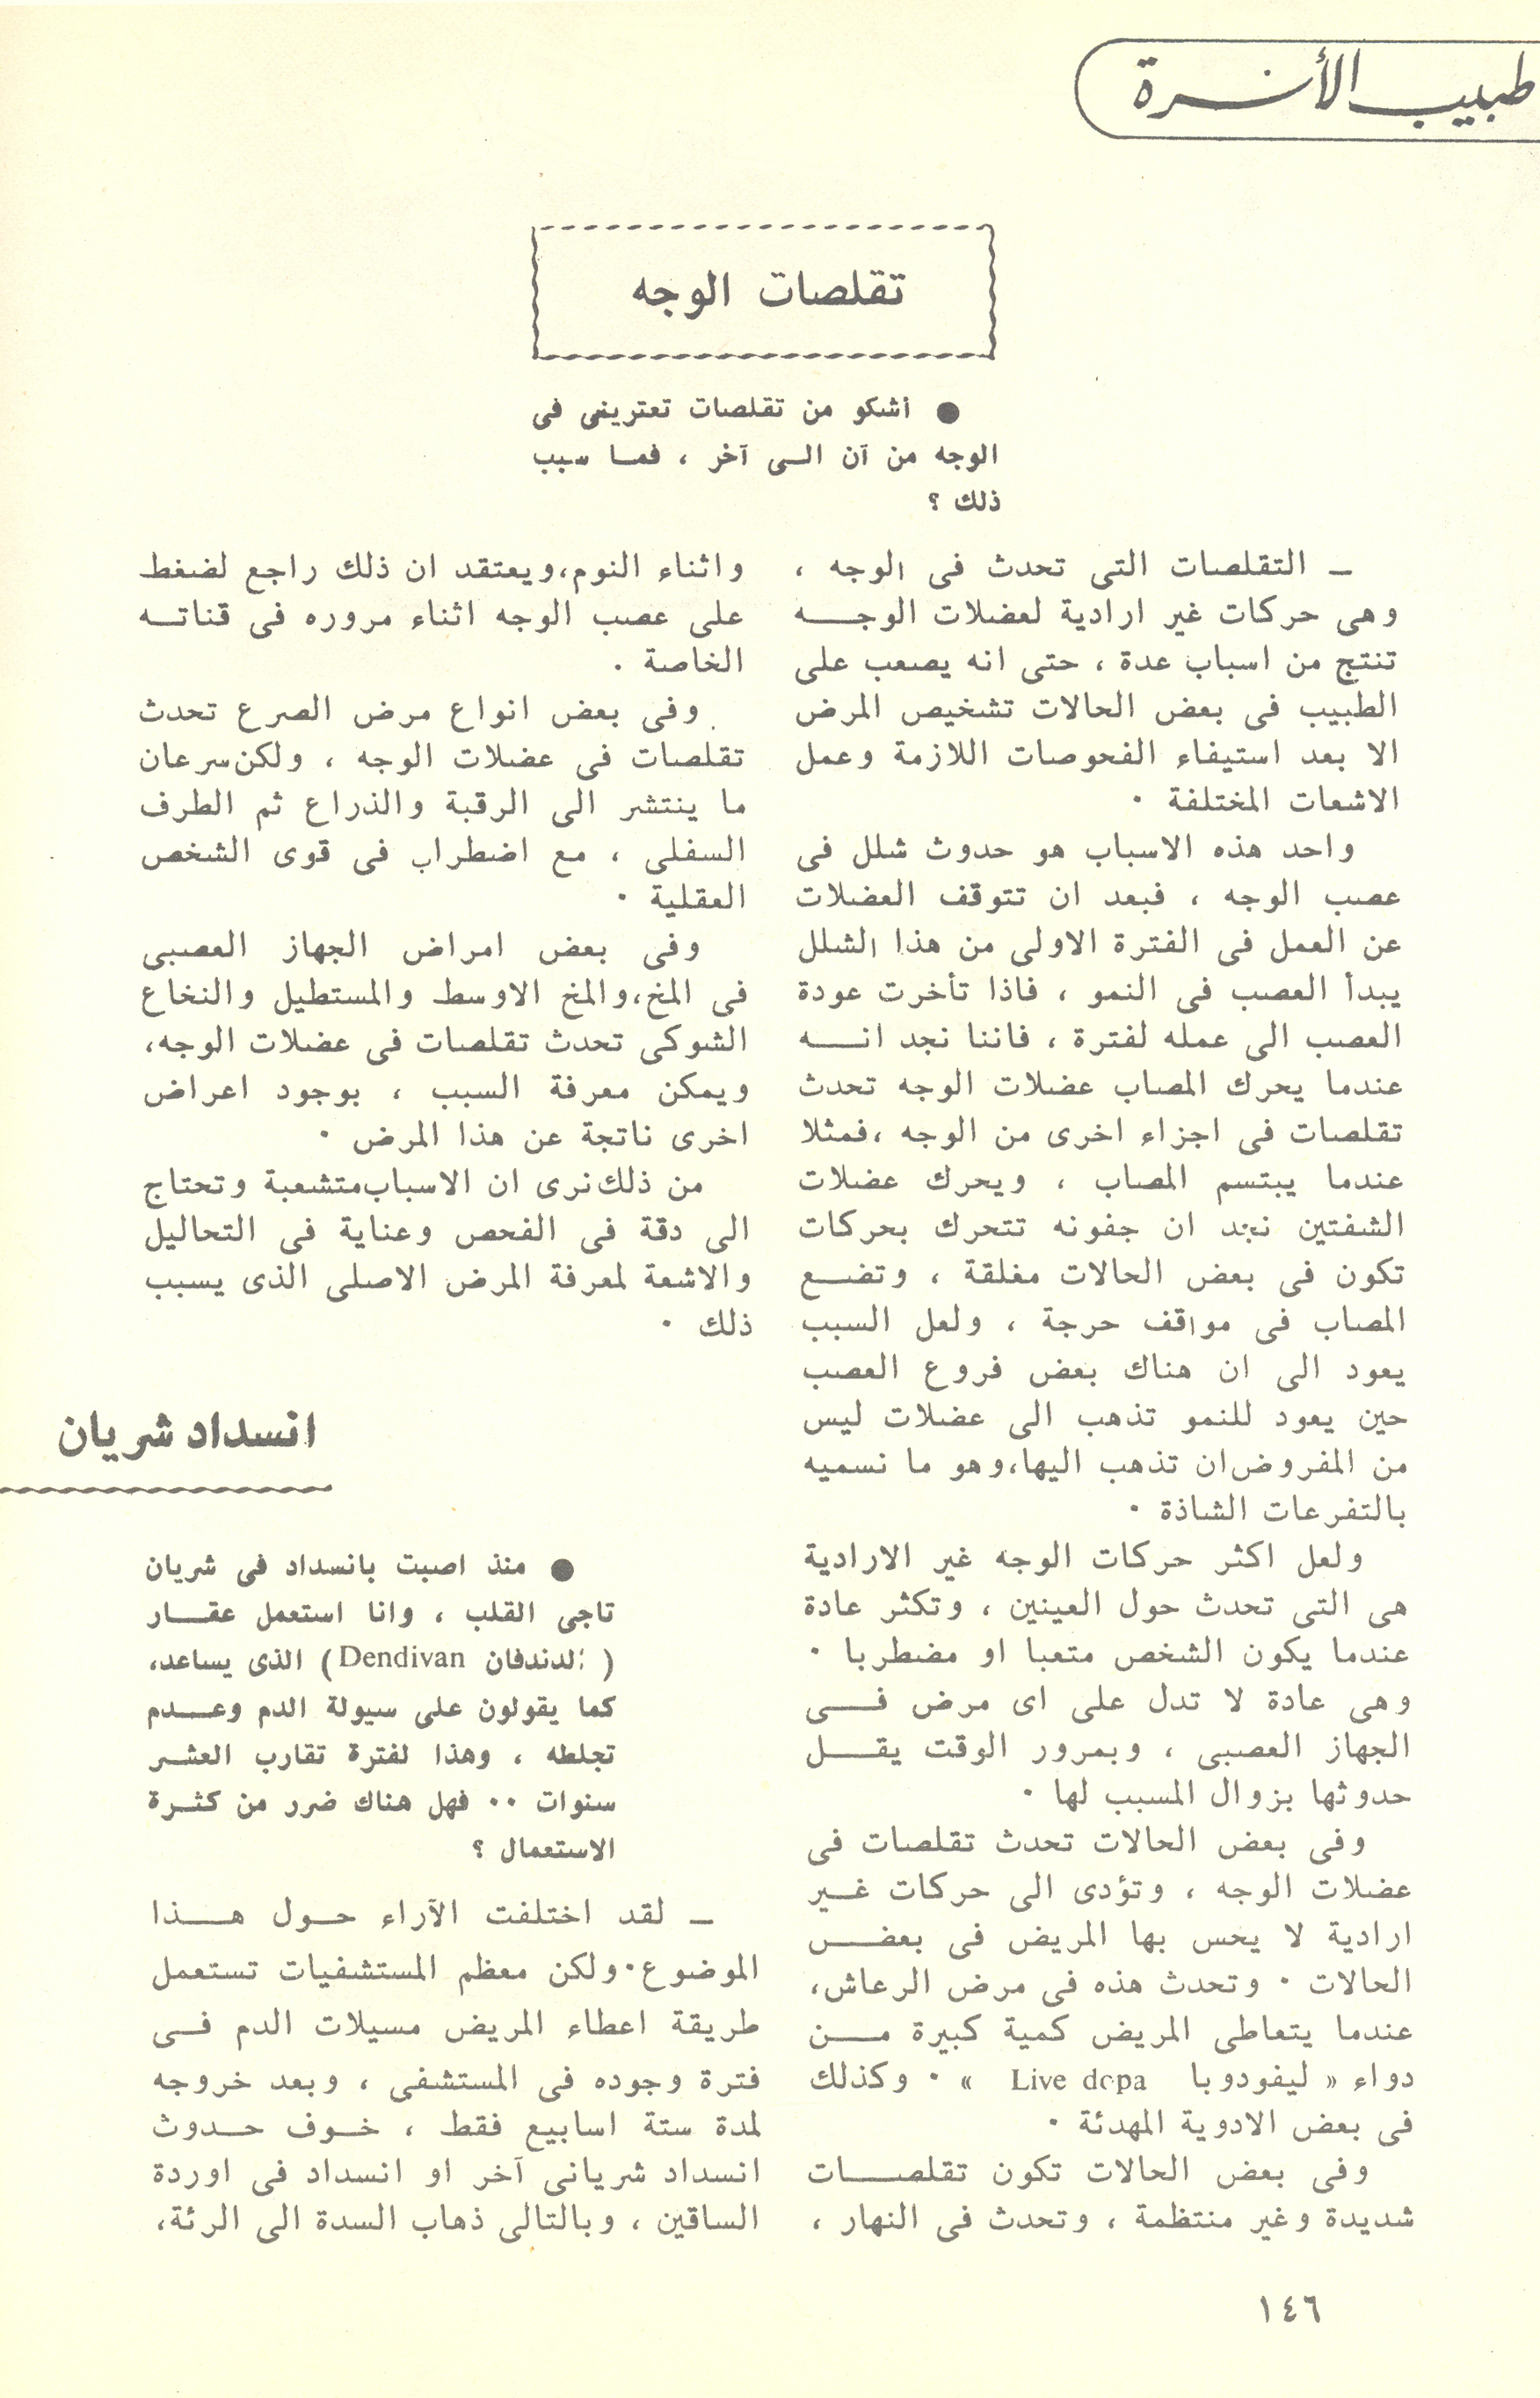 طبيب الأسرة
تقلصات الوجه
● أشكو من تقلصات تعترينى فى
الوجه من آن الـى آخر ، فمـا سبب
ذلك ؟
ـ التقلصات التى تحدث فى الوجه ،
وهى حركات غير ارادية لعضلات الوجـــه
تنتج من اسباب عدة ، حتى انه يصعب على
الطبيب فى بعض الحالات تشخيص المرض
الا بعد استيفاء الفحوصات اللازمة وعمل
الاشعات المختلفة ٠
واحد هذه الاسباب هو حدوث شلل فى
عصب الوجه ، فبعد ان تتوقف العضلات
عن العمل فى الفترة الاولى من هذا الشلل
يبدأ العصب فى النمو ، فاذا تأخرت عودة
العصب الى عمله لفترة ، فاننا نجد انـــه
عندما يحرك المصاب عضلات الوجه تحدث
تقلصات فى اجزاء اخرى من الوجه ،فمثلا
عندما يبتسم المصاب ، ويحرك عضلات
الشفتين نجد ان جفونه تتحرك بحركات
تكون فى بعض الحالات مغلقة ، وتضـــع
المصاب فى مواقف حرجة ، ولعل السبب
يعود الى ان هناك بعض فروع العصب
حين يعود للنمو تذهب الى عضلات ليس
من المفروض ان تذهب اليها،وهو ما نسميه
بالتفرعات الشاذة ٠
ولعل اكثر حركات الوجه غير الارادية
هى التى تحدث حول العينين ، وتكثر عادة
عندما يكون الشخص متعبا او مضطربا ٠
وهى عادة لا تدل على اى مرض فـــى
الجهاز العصبى ، وبمرور الوقت يقـــل
حدوثها بزوال المسبب لها ٠
وفى بعض الحالات تحدث تقلصات فى
عضلات الوجه ، وتؤدى الى حركات غـــير
ارادية لا يحس بها المريض فى بعضـــ
الحالات ٠ وتحدث هذه فى مرض الرعاش،
عندما يتعاطى المريض كمية كبيرة مـــن
دواء « ليفودوبا Live dopa » ٠ وكذلك
فى بعض الادوية المهدئة ٠
وفى بعض الحالات تكون تقلصـــات
شديدة وغير منتظمة ، وتحدث فى النهار ،
واثناء النوم،ويعتقد ان ذلك راجع لضغط
على عصب الوجه اثناء مروره فى قناتـــه
الخاصة ٠
وفى بعض انواع مرض الصرع تحدث
تقلصات فى عضلات الوجه ، ولكن سرعان
ما ينتشر الى الرقبة والذراع ثم الطرف
السفلى ، مع اضطراب فى قوى الشخص
العقلية ٠
وفى بعض امراض الجهاز العصبى
فى المخ،والمخ الاوسط والمستطيل والنخاع
الشوكى تحدث تقلصات فى عضلات الوجه،
ويمكن معرفة السبب ، بوجود اعراض
اخرى ناتجة عن هذا المرض ٠
من ذلك نرى ان الاسباب متشعبة وتحتاج
الى دقة فى الفحص وعناية فى التحاليل
والاشعة لمعرفة المرض الاصلى الذى يسبب
ذلك ٠
انسداد شريان
● منذ اصبت بانسداد فى شريان
تاجى القلب ، وانا استعمل عقـــار
( الدندفان Dendivan) الذى يساعد،
كما يقولون على سيولة الدم وعـــدم
تجلطه ، وهذا لفترة تقارب العشـــر
سنوات ٠٠ فهل هناك ضرر من كثـــرة
الاستعمال ؟
ـ لقد اختلفت الآراء حـــول هـــذا
الموضوع٠ولكن معظم المستشفيات تستعمل
طريقة اعطاء المريض مسيلات الدم فـــى
فترة وجوده فى المستشفى ، وبعد خروجه
لمدة ستة اسابيع فقط ، خـــوف حـــدوث
انسداد شريانى آخر او انسداد فى اوردة
الساقين ، وبالتالى ذهاب السدة الى الرئة،
١٤٦